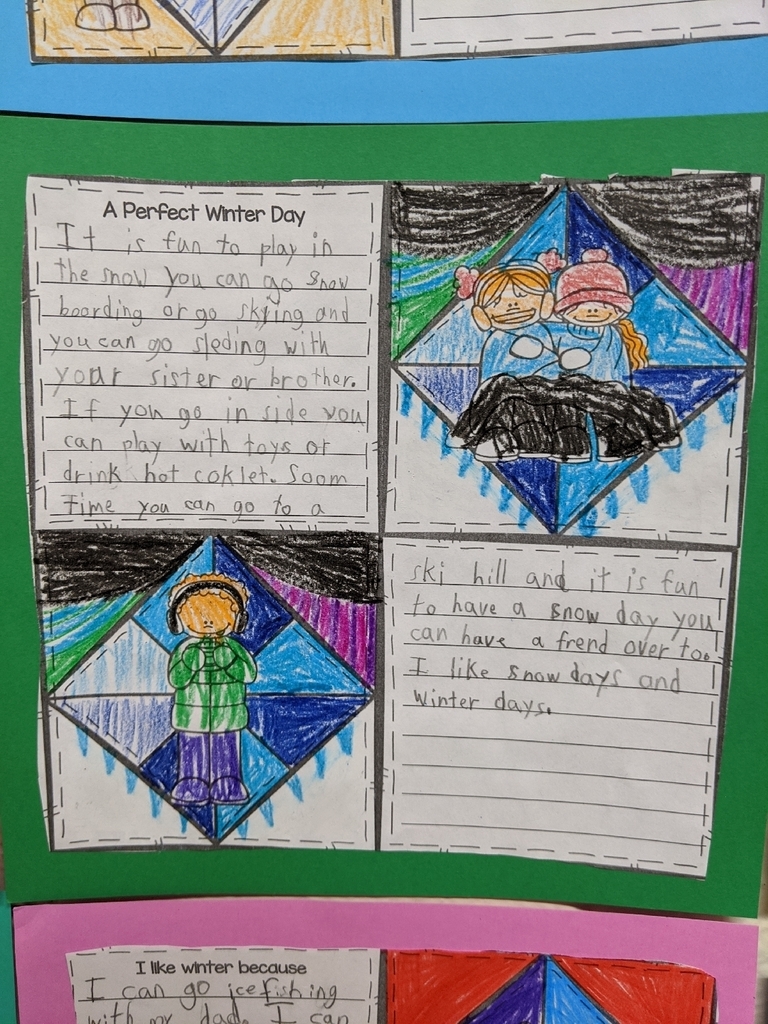 A Perfect Winter Day
It is fun to play in
the snow you can go snow
boording or go skying and
you can go sleding with
your sister or brother.
If you go in side you
can play with toys or
drink hot coklet. Soom
Time you can go to a
ski hill and it is fun
to have a snow day you
can have a frend over to.
I like snow days and
winter days.
I like winter because
I can go icefishing
with my dad. I can